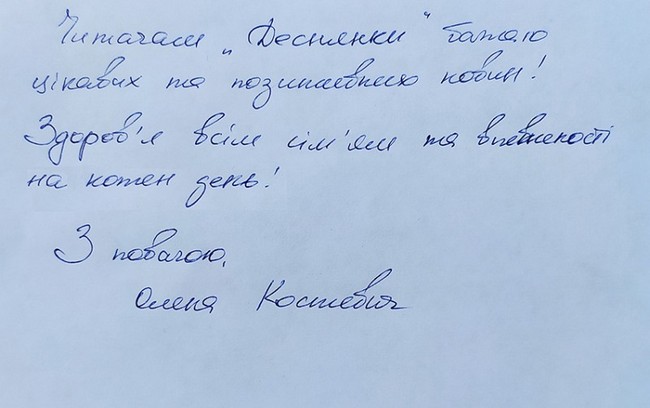 Читачам „Деснянки" бажаю
цікавих та позитивних новин!
Здоров'я всім сім'ям та впевненості
на кожен день!
З повагою,
Олена Костевич